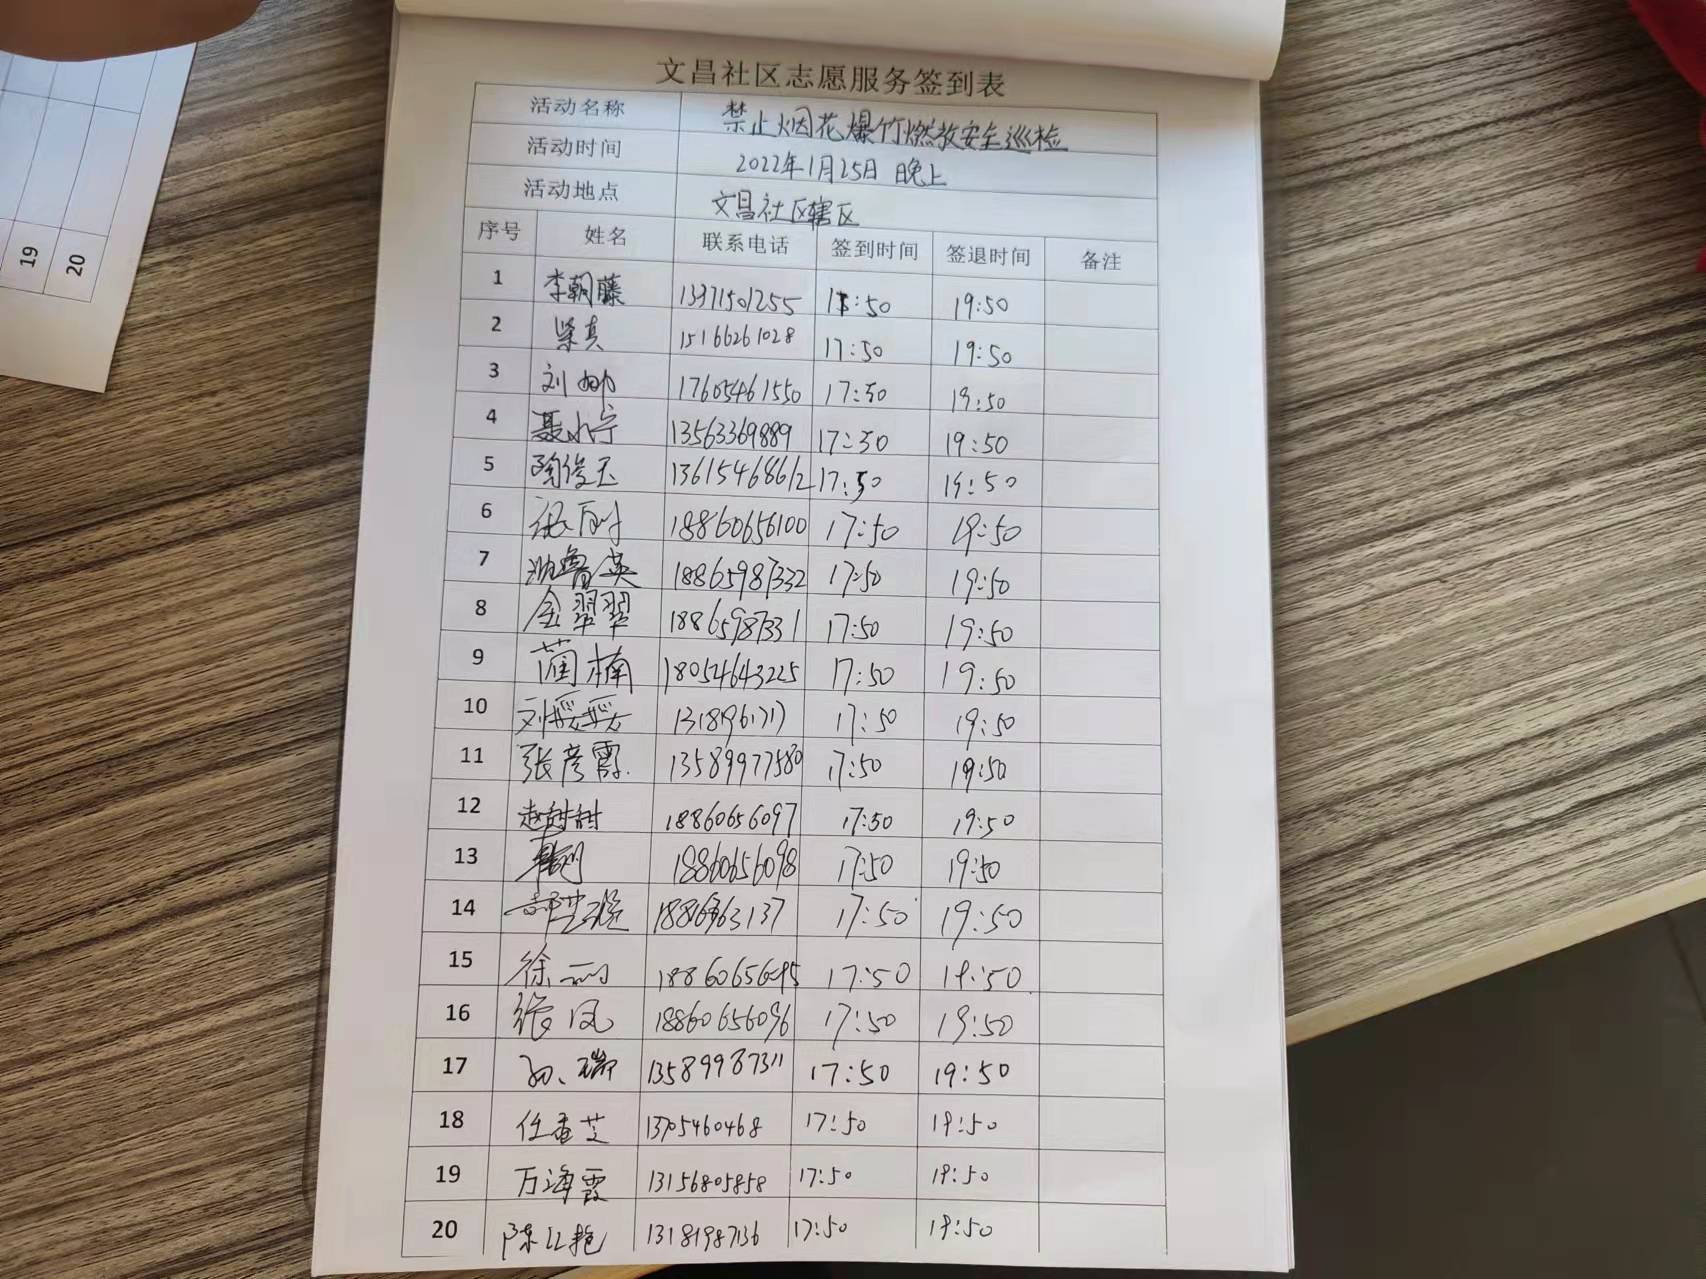 文昌社区志愿服务签到表
活动名称 禁止烟花爆竹燃放安全巡检
活动时间 2022年1月25日 晚上
活动地点 文昌社区辖区
序号 姓名 联系电话 签到时间 签退时间 备注
1 李朝藤 13371501255 17:50 19:50
2 15166261028 17:50 19:50
3 刘娜 17605461550 17:50 19:50
4 聂小宁 13563369889 17:50 19:50
5 陶俊玉 13615468612 17:50 19:50
6 18860656100 17:50 19:50
7 18865987332 17:50 19:50
8 金翠翠 18865987331 17:50 19:50
9 蔺楠 18054643225 17:50 19:50
10 刘媛媛 17:50 19:50
11 张彦霞 13589977580 17:50 19:50
12 赵甜甜 18860656097 17:50 19:50
13 18860656098 17:50 19:50
14 17:50 19:50
15 徐丽 18860656095 17:50 19:50
16 张凤 18860656096 17:50 19:50
17 13589987311 17:50 19:50
18 任香芝 13705460468 17:50 19:50
19 万海霞 13156805858 17:50 19:50
20 陈红艳 13181987136 17:50 19:50
19
20